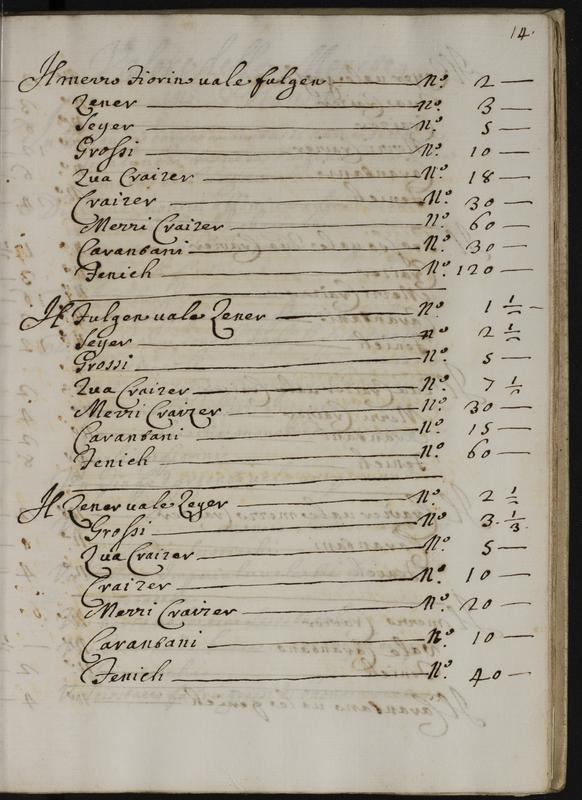 14.
Il mezzo Fiorino vale fulgen N.º 2
Zener N.º 3
Seyer N.º 5
Grossi N.º 10
Zua Craizer N.º 18
Craizer N.º 30
Mezzi Craizer N.º 60
Carantani N.º 30
Fenich N.º 120
Il Fulgen vale Zener N.º 1 1/2
Seyer N.º 2 1/2
Grossi N.º 5
Zua Craizer N.º 7 1/2
Mezzi Craizer N.º 30
Carantani N.º 15
Fenich N.º 60
Il Zener vale Zeyer N.º 2 1/2
Grossi N.º 3. 1/3
Zua Craizer N.º 5
Craizer N.º 10
Mezzi Craizer N.º 20
Carantani N.º 10
Fenich N.º 40